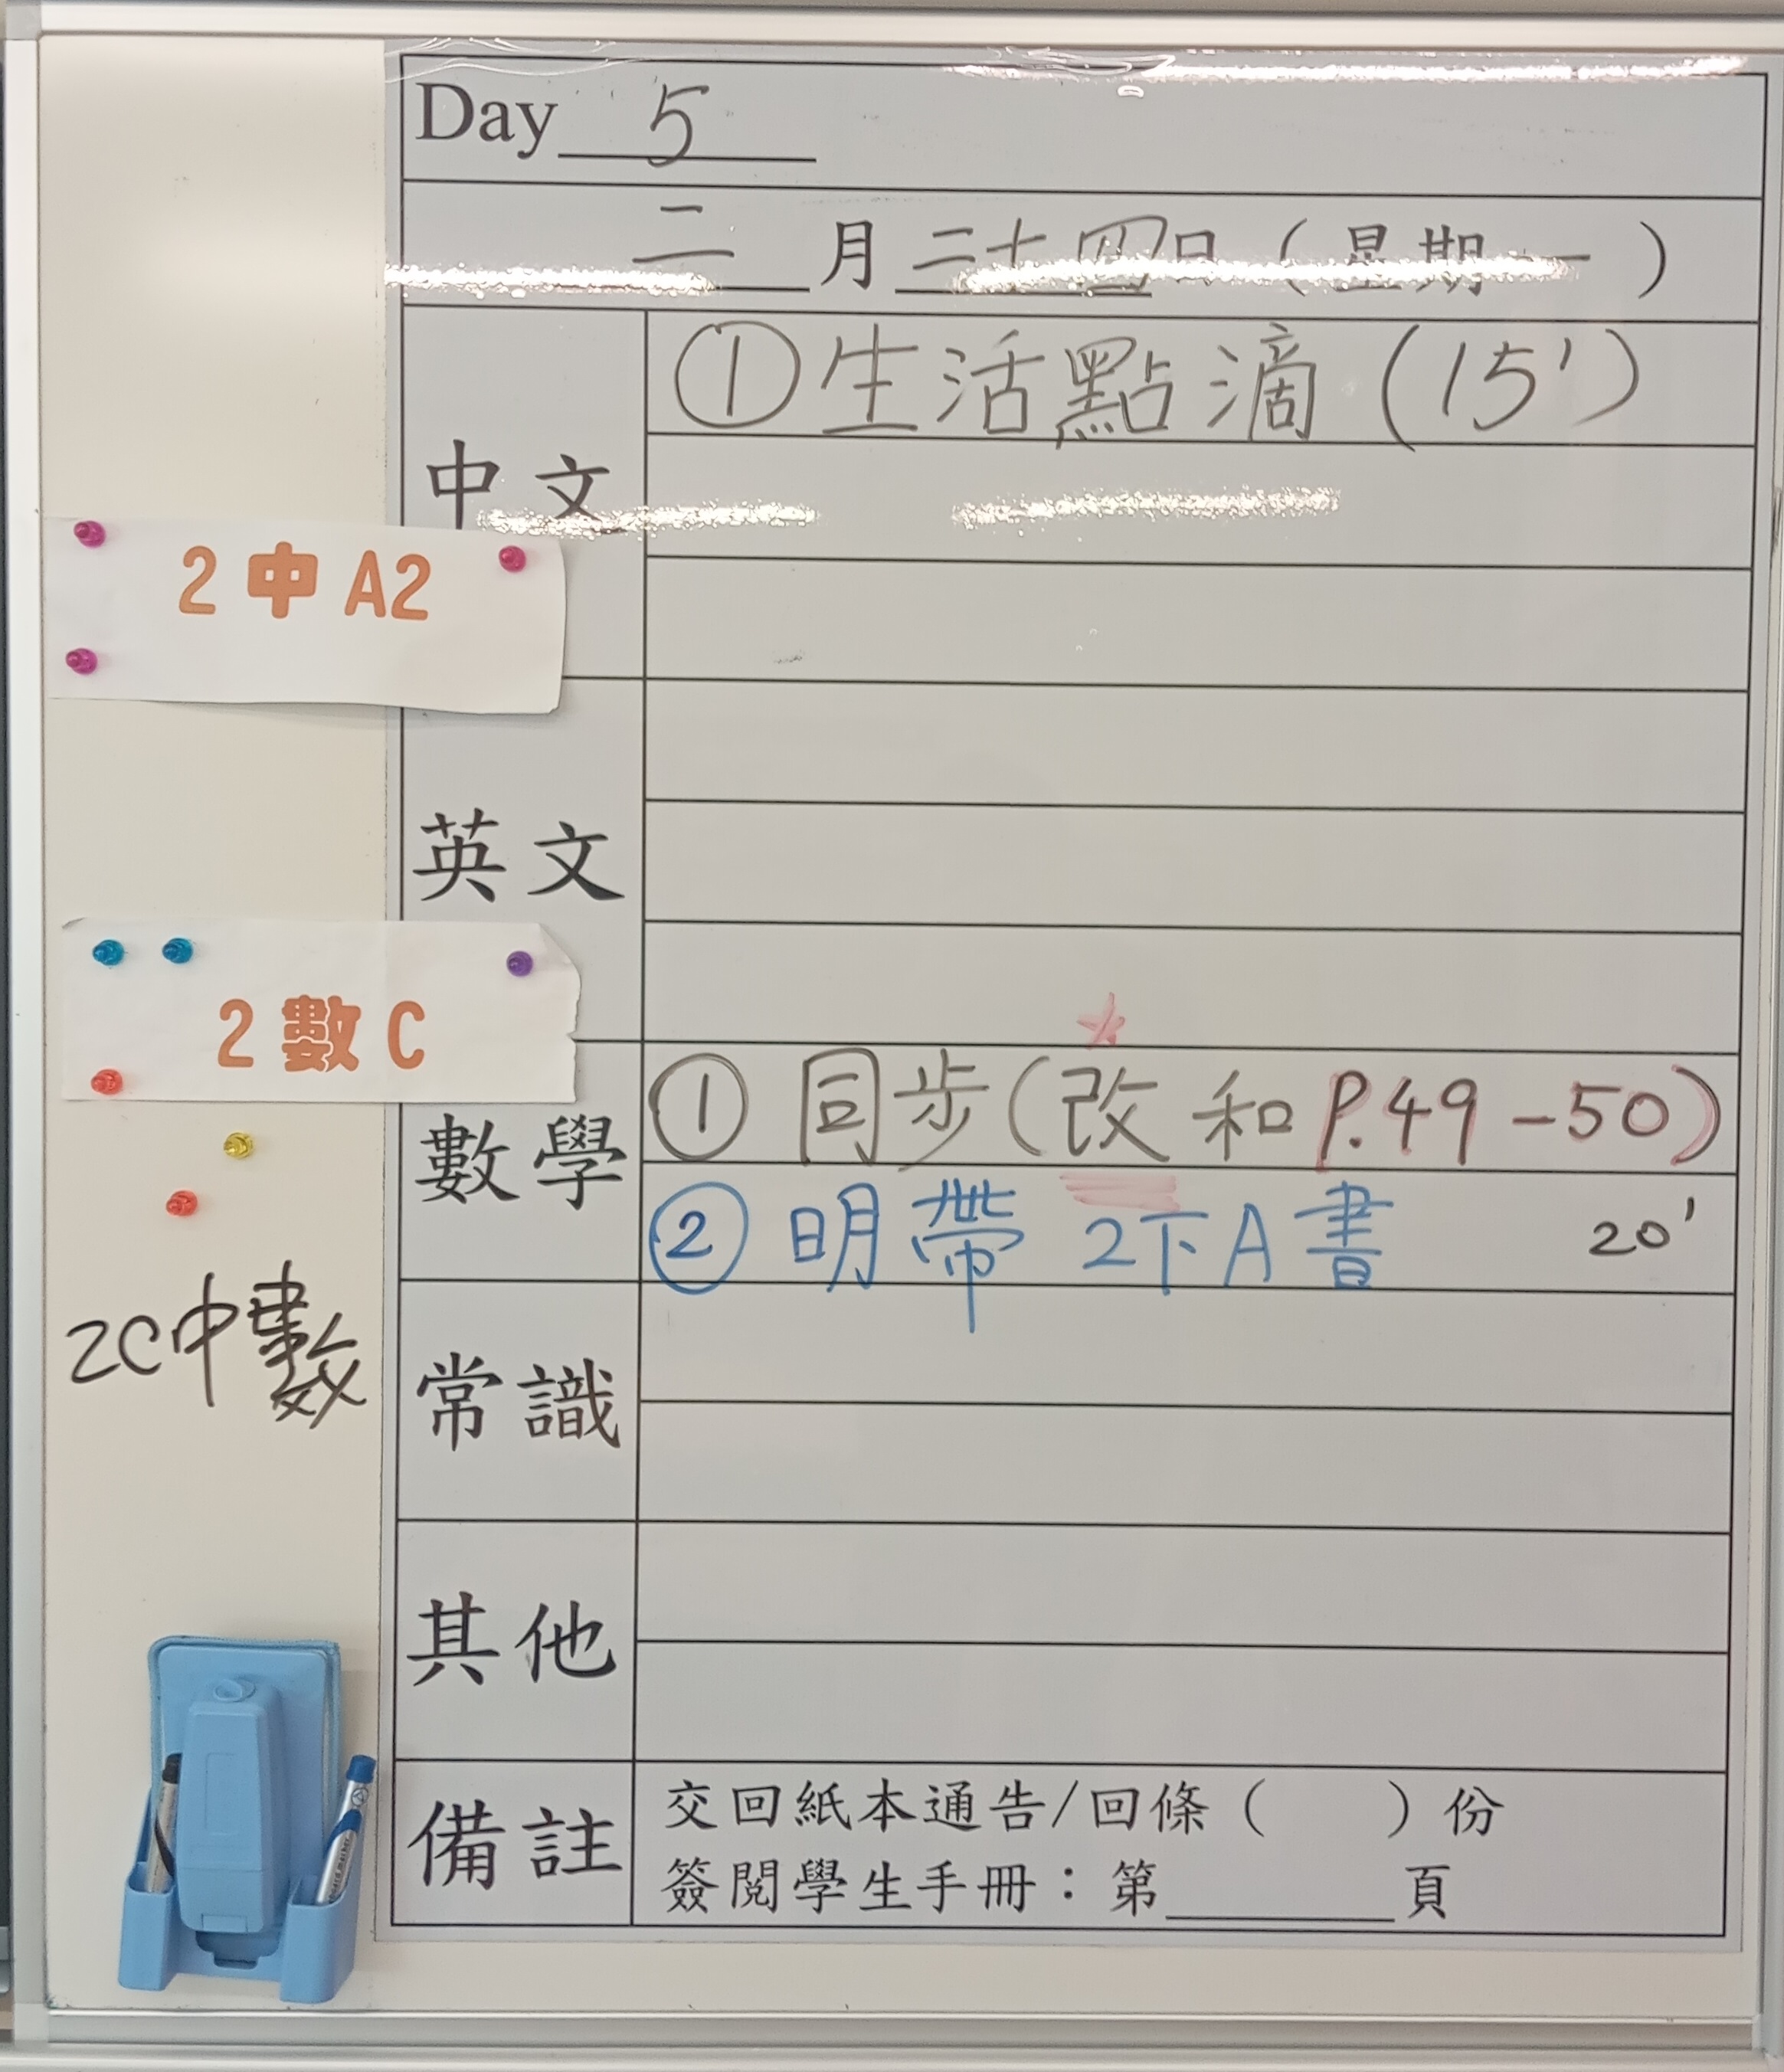 Day 5
二 月 二十四 日 ( 星期一 )
中文
① 生活點滴 (15')
2 中 A2
英文
2 數 C
數學
① 同步 (改 和 P.49-50)
② 明帶 2下A書 20'
2C中數
常識
其他
備註
交回紙本通告/回條 ( ) 份
簽閱學生手冊：第______頁